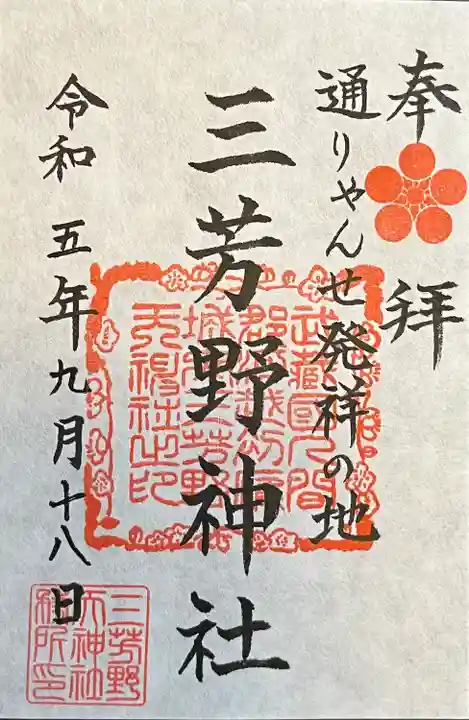 奉拝
通りゃんせ発祥の地
三芳野神社
令和五年九月十八日
武蔵国入間
郡河越初雁
城内三芳野
天神社之印
三芳野
天神社
社務所印